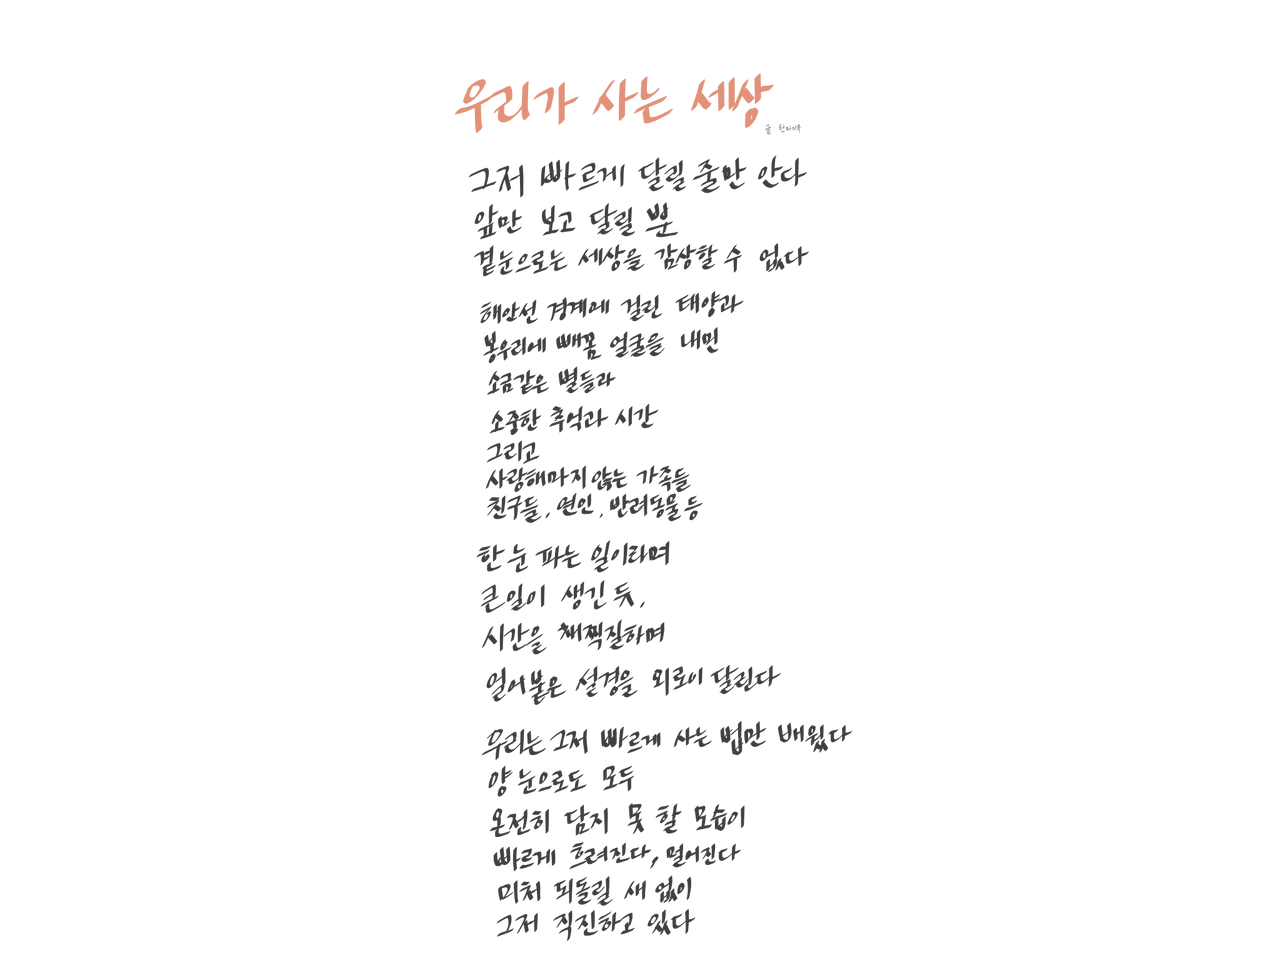 우리가 사는 세상
글
그저 빠르게 달릴 줄만 안다
앞만 보고 달릴 뿐
곁눈으로는 세상을 감상할 수 없다
해안선 경계에 걸린 태양과
봉우리에 빼꼼 얼굴을 내민
소금같은 별들과
소중한 추억과 시간
그리고
사랑해마지않는 가족들
친구들, 연인, 반려동물 등
한 눈 파는 일이라며
큰일이 생긴 듯,
시간을 채찍질하며
얼어붙은 설경을 외로이 달린다
우리는 그저 빠르게 사는 법만 배웠다
양 눈으로도 모두
온전히 담지 못 할 모습이
빠르게 흐려진다, 멀어진다
미처 되돌릴 새 없이
그저 직진하고 있다